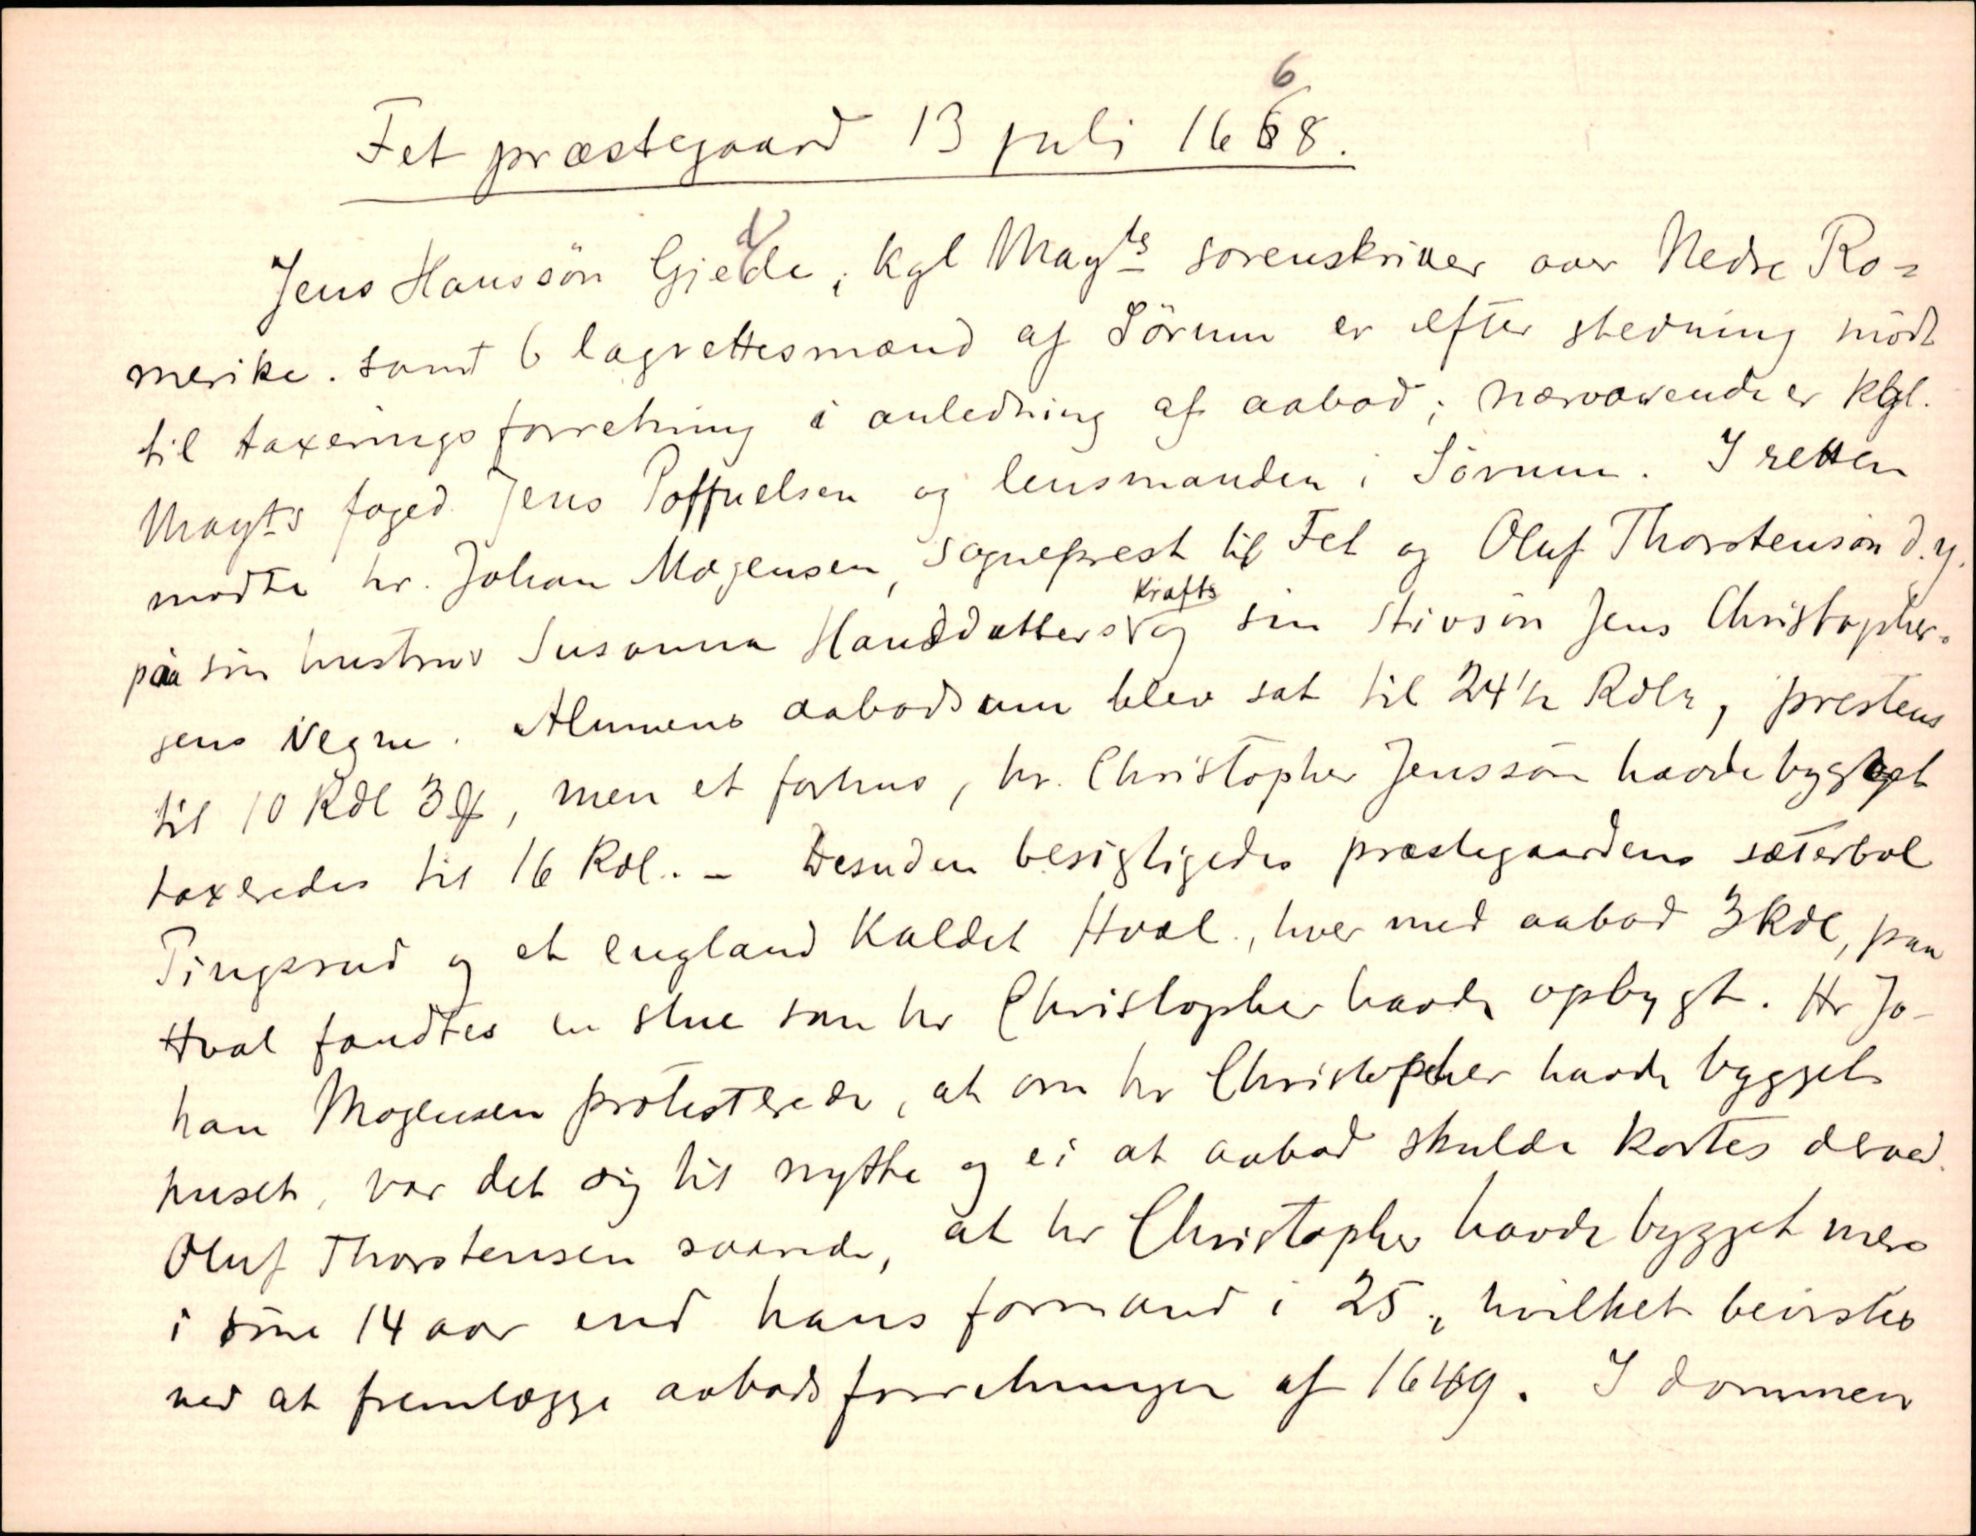 Fet præstegaard 13 juli 1668.
Jens Hanssön Gjedde, Kgl Mayts sorenskriver over Nedre Ro=
merike. samt 6 lagrettesmænd af Sörum er efter stedning mödt
til taxeringsforretning i anledning af aabod; nærværende er kgl.
Mayts foged Jens Poffuelsen og lensmanden i Sörum. I retten
mödte hr. Johan Mogensen, sogneprest til Fet og Oluf Thorstensön d.y.
paa sin hustrus Susanna Hansdatters Krafts og sin stivsön Jens Christopher=
sens vegne. Almuens aabodsum blev sat til 24 1/2 Rdlr, prestens
til 10 Rdl 3 ƒ, men et forhus, hr. Christopher Jenssön havde bygget
taxeredes til 16 Rdl. - Desuden besigtigedes præstegaardens sæterbol
Tingsrud og et england kaldet Hval, hver med aabod 3 Rdl, paa
Hval fandtes en stue som hr Christopher havde opbygt. Hr Jo-
han Mogensen protesterede, at om hr Christopher havde bygget
huset, var det sig til nytte og ei at aabod skulde kortes derved.
Oluf Thorstensen svarede, at hr Christopher havde bygget mere
i sine 14 aar end hans formand i 25, hvilket bevistes
ved at fremlægge aabodsforretningen af 1649. I dommen